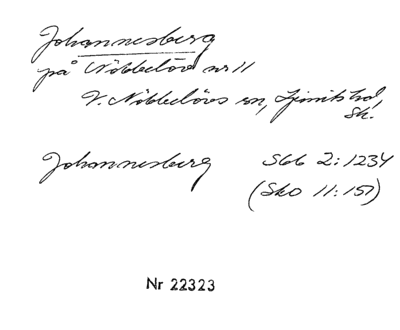 Johannesberg
på Nöbbelöv nr 11
V. Nöbbelövs sn, Ljunits hd,
Sk.
Johannesberg S66 2:1234
(Sko 11:151)
Nr 22323